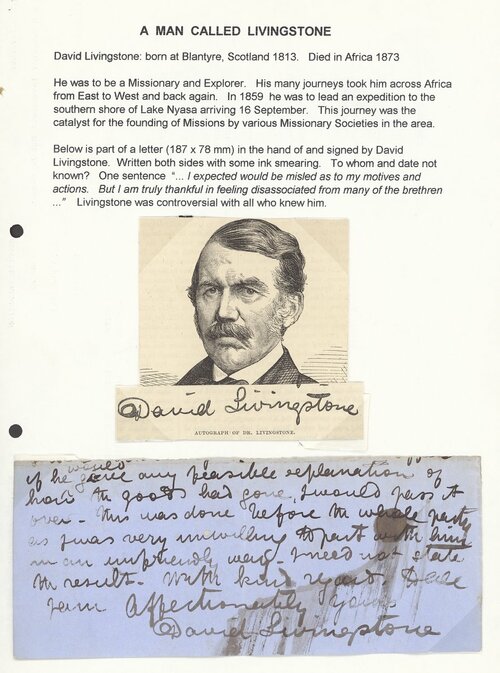 A MAN CALLED LIVINGSTONE
David Livingstone: born at Blantyre, Scotland 1813. Died in Africa 1873
He was to be a Missionary and Explorer. His many journeys took him across Africa
from East to West and back again. In 1859 he was to lead an expedition to the
southern shore of Lake Nyasa arriving 16 September. This journey was the
catalyst for the founding of Missions by various Missionary Societies in the area.
Below is part of a letter (187 x 78 mm) in the hand of and signed by David
Livingstone. Written both sides with some ink smearing. To whom and date not
known? One sentence “... I expected would be misled as to my motives and
actions. But I am truly thankful in feeling disassociated from many of the brethren
...” Livingstone was controversial with all who knew him.
David Livingstone
AUTOGRAPH OF DR. LIVINGSTONE.
would
if he give any feasible explanation of
how the goods had gone I would pass it
over - This was done before the whole party
as I was very unwilling to part with him
in an unfriendly way - I need not state
the result - With kind regards
I am Affectionately Yours
David Livingstone